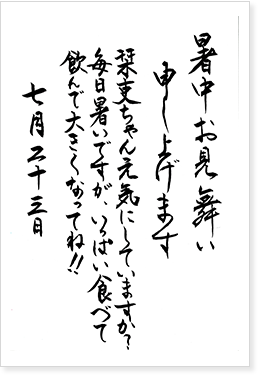 暑中お見舞い
申し上げます
栞吏ちゃん元気にしていますか？
毎日暑いですが、いっぱい食べて
飲んで大きくなってね!!
七月二十三日